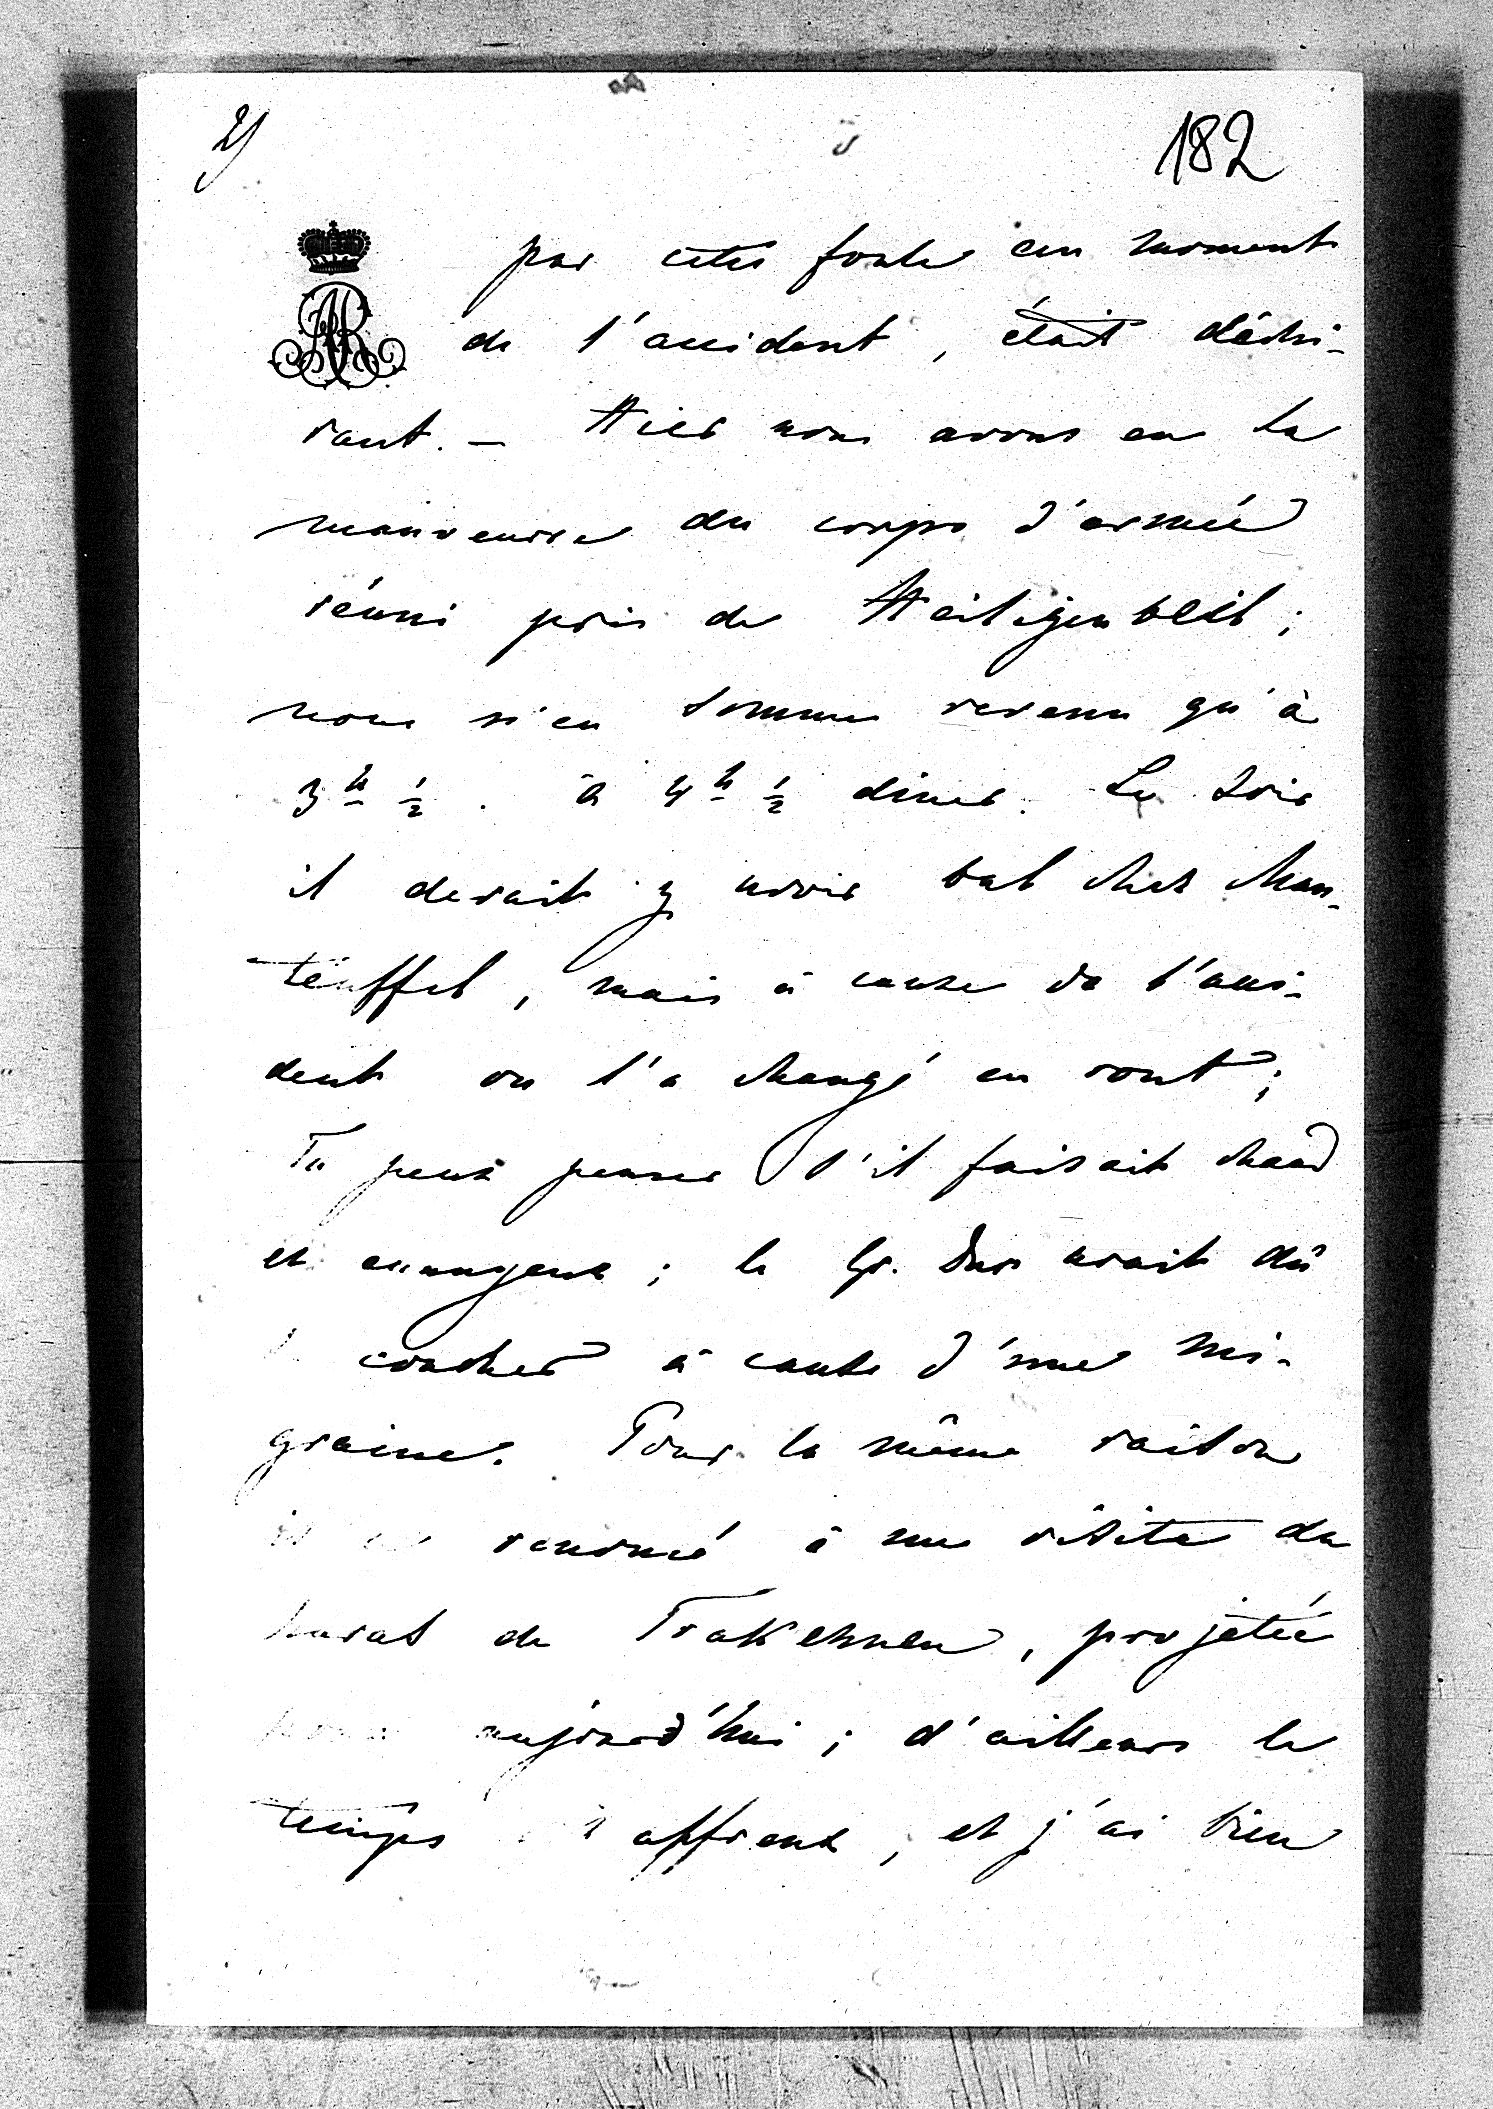 2)
182
par cette foule au moment
de l'accident, était déchi-
rant. — Hier nous avons eu la
manoeuvre du corps d'armée
réuni près de Heiligenbeil;
nous n'en sommes revenu qu'à
3 h ½. à 4 h ½ diner. Le soir
il devait y avoir bal chez Man-
teuffel, mais à cause de l'acci-
dent on l'a changé en rout;
Tu peux penser s'il faisait chaud
et ennuyeux; le Gr. Duc avait dû
coucher à cause d'une mi-
graine. Pour la même raison
renoncé à une visite du
haras de Trakehnen, projetée
pour aujourd'hui; d'ailleurs le
temps affreux, et j'ai bien